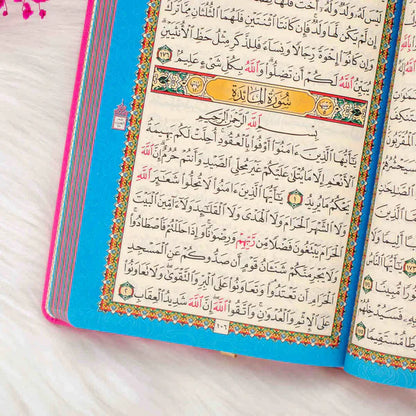 لَيْسَ لَهُۥ وَلَدٌ وَلَهُۥٓ أُخْتٌ فَلَهَا
إِن لَّمْ يَكُن لَّهَا وَلَدٌ فَإِن كَانَتَا ٱثْنَتَيْنِ فَلَهُمَا ٱلثُّلُثَانِ مِمَّا تَرَكَ
وَإِن كَانُوٓا۟ إِخْوَةً رِّجَالًا وَنِسَآءً فَلِلذَّكَرِ مِثْلُ حَظِّ ٱلْأُنثَيَيْنِ
يُبَيِّنُ ٱللَّهُ لَكُمْ أَن تَضِلُّوا۟ وَٱللَّهُ بِكُلِّ شَىْءٍ عَلِيمٌ ١٧٦
سُورَةُ المَائِدَةِ
بِسْمِ ٱللَّهِ ٱلرَّحْمَٰنِ ٱلرَّحِيمِ
يَٰٓأَيُّهَا ٱلَّذِينَ ءَامَنُوٓا۟ أَوْفُوا۟ بِٱلْعُقُودِ أُحِلَّتْ لَكُم بَهِيمَةُ
ٱلْأَنْعَٰمِ إِلَّا مَا يُتْلَىٰ عَلَيْكُمْ غَيْرَ مُحِلِّى ٱلصَّيْدِ وَأَنتُمْ حُرُمٌ إِنَّ ٱللَّهَ
يَحْكُمُ مَا يُرِيدُ ١ يَٰٓأَيُّهَا ٱلَّذِينَ ءَامَنُوا۟ لَا تُحِلُّوا۟ شَعَٰٓئِرَ ٱللَّهِ
وَلَا ٱلشَّهْرَ ٱلْحَرَامَ وَلَا ٱلْهَدْىَ وَلَا ٱلْقَلَٰٓئِدَ وَلَآ ءَآمِّينَ ٱلْبَيْتَ
ٱلْحَرَامَ يَبْتَغُونَ فَضْلًا مِّن رَّبِّهِمْ وَرِضْوَٰنًا وَإِذَا حَلَلْتُمْ فَٱصْطَادُوا۟
وَلَا يَجْرِمَنَّكُمْ شَنَـَٔانُ قَوْمٍ أَن صَدُّوكُمْ عَنِ ٱلْمَسْجِدِ
ٱلْحَرَامِ أَن تَعْتَدُوا۟ وَتَعَاوَنُوا۟ عَلَى ٱلْبِرِّ وَٱلتَّقْوَىٰ وَلَا تَعَاوَنُوا۟
عَلَى ٱلْإِثْمِ وَٱلْعُدْوَٰنِ وَٱتَّقُوا۟ ٱللَّهَ إِنَّ ٱللَّهَ شَدِيدُ ٱلْعِقَابِ ٢
١٠٦